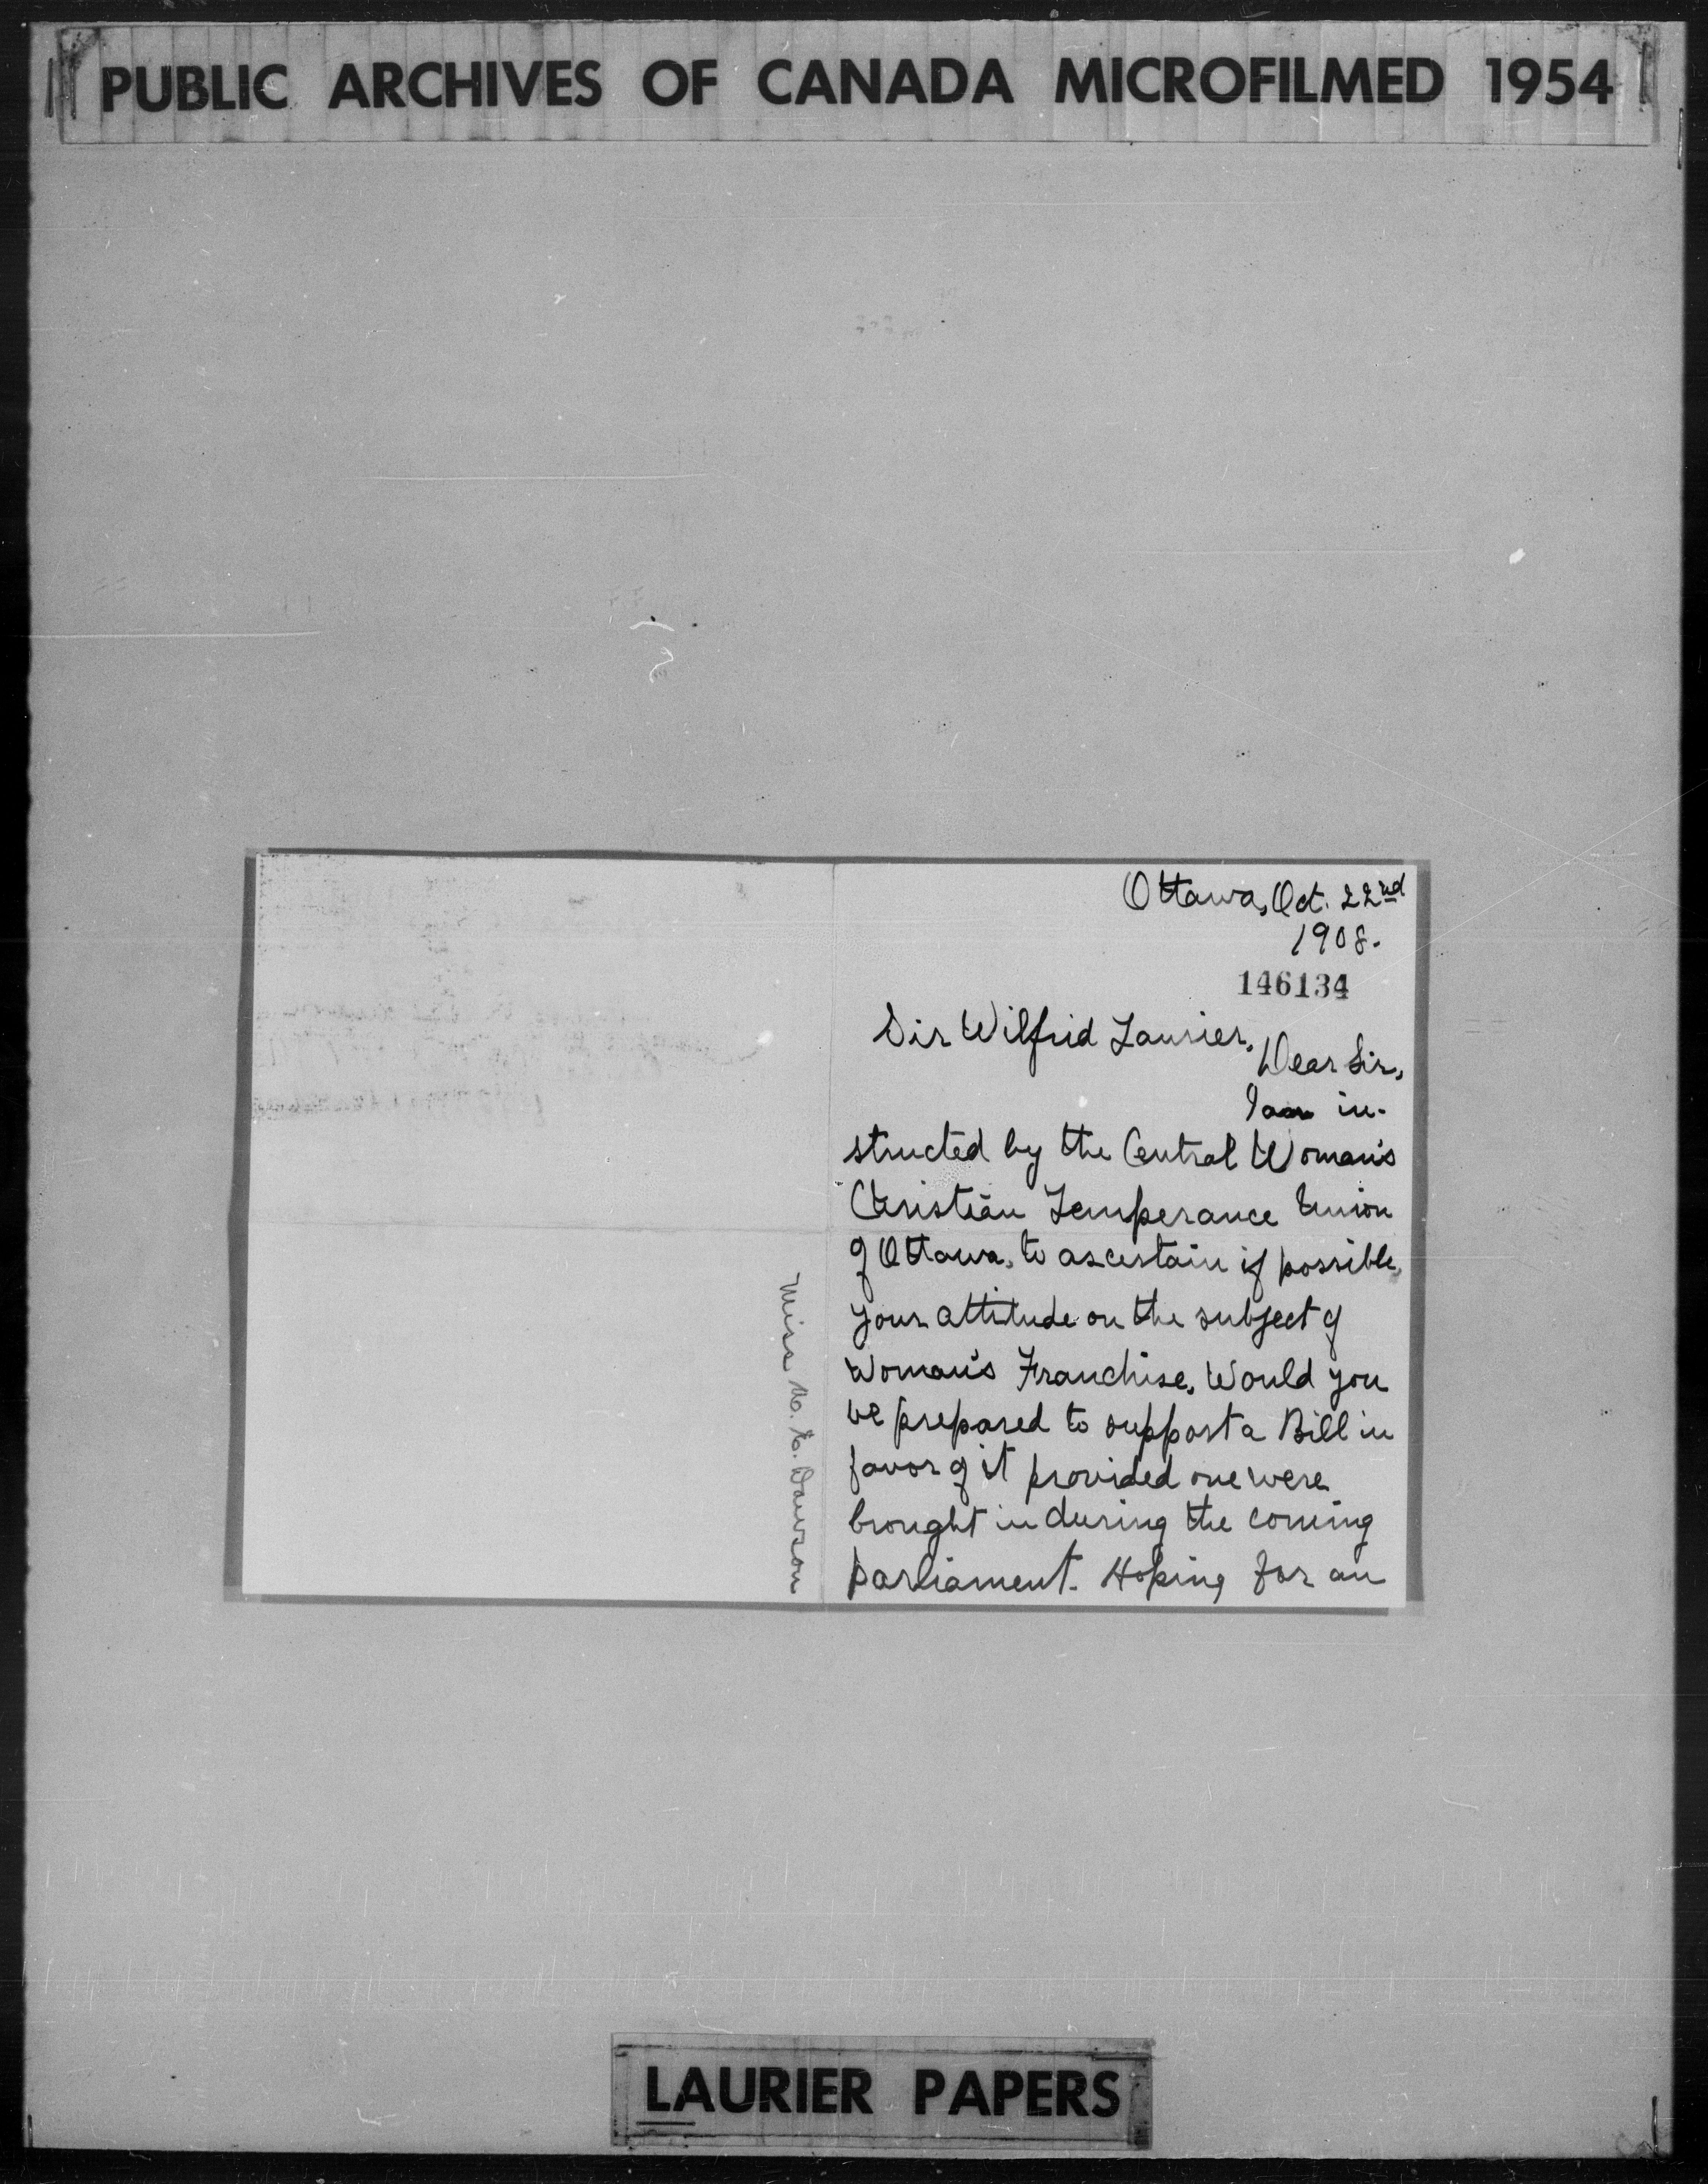 PUBLIC ARCHIVES OF CANADA MICROFILMED 1954
Ottawa, Oct. 22nd
1908.
146134
Sir Wilfrid Laurier,
Dear Sir,
I am in-
structed by the Central Woman's
Christian Temperance Union
of Ottawa, to ascertain if possible,
your attitude on the subject of
Woman's Franchise. Would you
be prepared to support a Bill in
favor of it provided one were
brought in during the coming
parliament. Hoping for an
Miss M. E. Dawson
LAURIER PAPERS